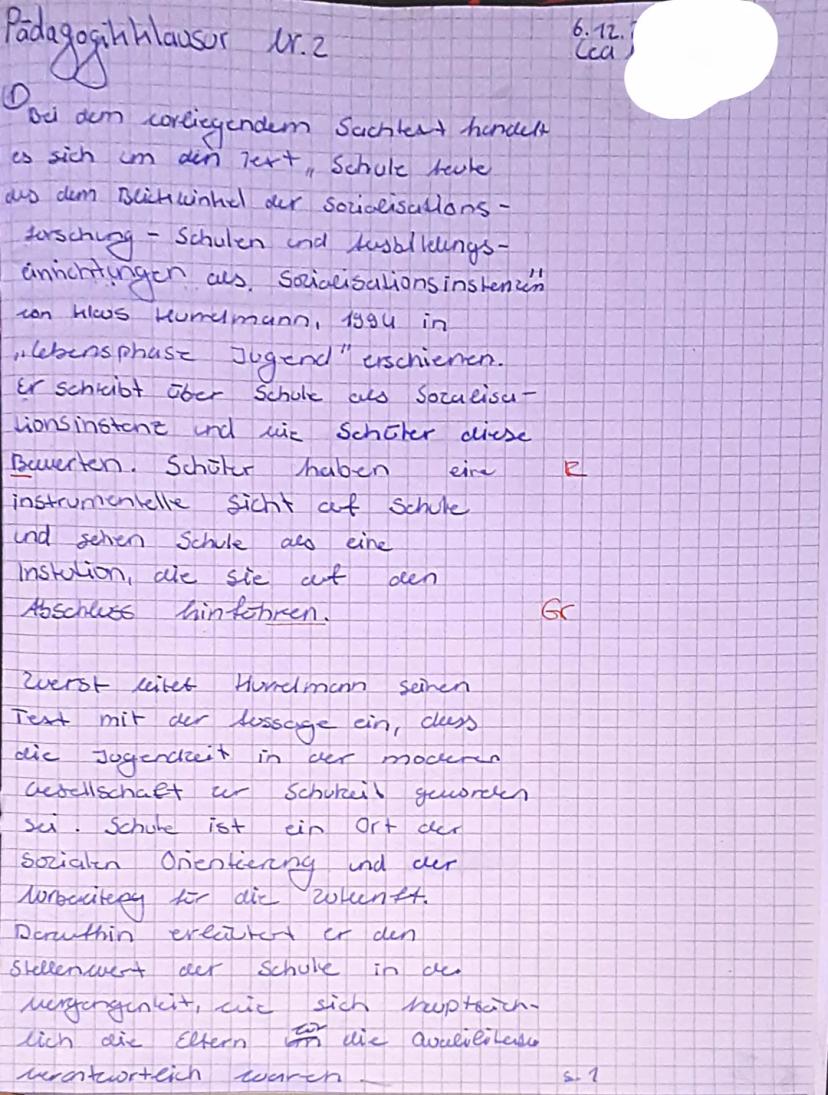 Pädagogikklausur Nr. 2 6.12.
①
Bei dem vorliegendem Sachtext handelt
es sich um den Text „Schule heute
aus dem Blickwinkel der Sozialisations-
forschung - Schulen und Ausbildungs-
einrichtungen als Sozialisationsinstanzen"
von Klaus Hurrelmann, 1994 in
„Lebensphase Jugend" erschienen.
Er schreibt über Schule als Sozialisa-
tionsinstanz und wie Schüler diese
Bewerten. Schüler haben eine R
instrumentelle Sicht auf Schule
und sehen Schule als eine
Instution, die sie auf den
Abschluss hinführen. Gr
Zuerst leitet Hurrelmann seinen
Text mit der Aussage ein, dass
die Jugendzeit in der modernen
Gesellschaft zur Schulzeit geworden
sei. Schule ist ein Ort der
sozialen Orientierung und der
Vorbereitung für die Zukunft.
Daraufhin erläutert er den
Stellenwert der Schule in der
Vergangenheit, wie sich hauptsäch-
lich die Eltern für die
verantwortlich waren S. 1